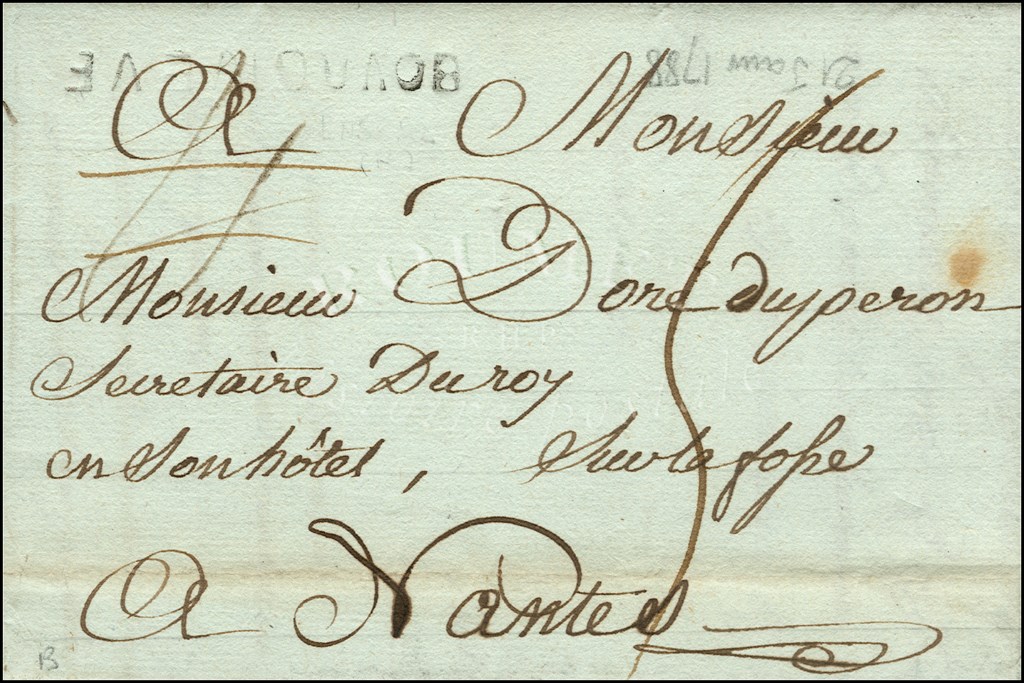 21 Janv 1788
A Monsieur
Monsieur Doré Duperon
Secretaire Du roy
en Son hôtel, Sur la fosse
A Nantes
B